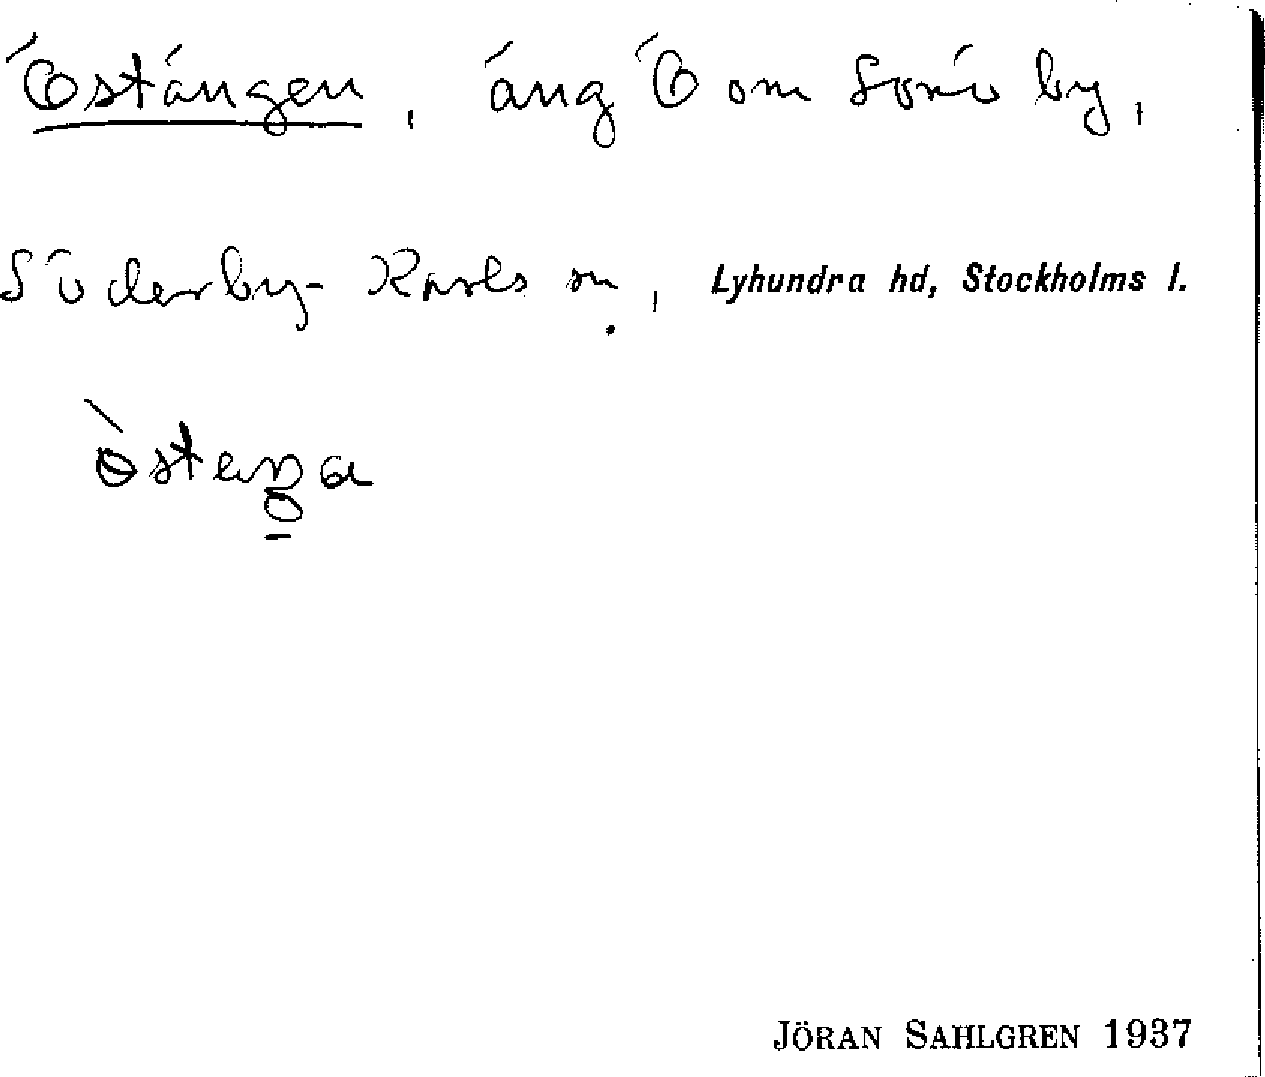 Östängen, äng Ö om Sonö by,
Söderby-Karls sn, Lyhundra hd, Stockholms l.
JÖRAN SAHLGREN 1937